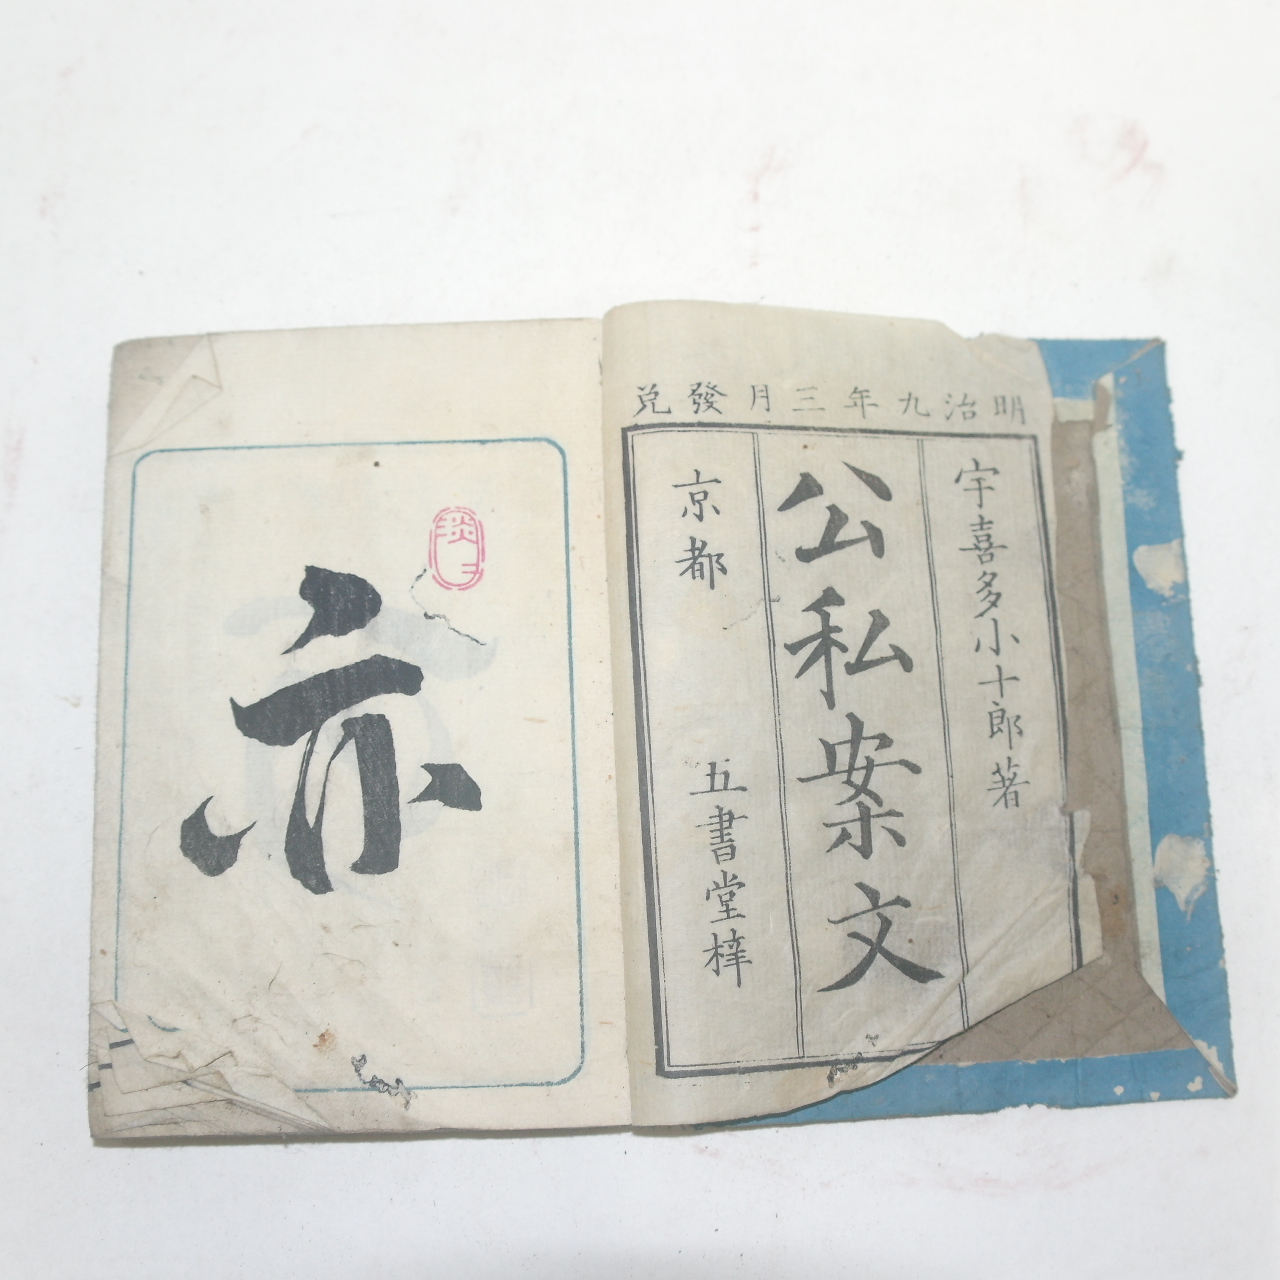 明治九年三月發兌
宇喜多小十郎著
公私案文
京都 五書堂梓
亦